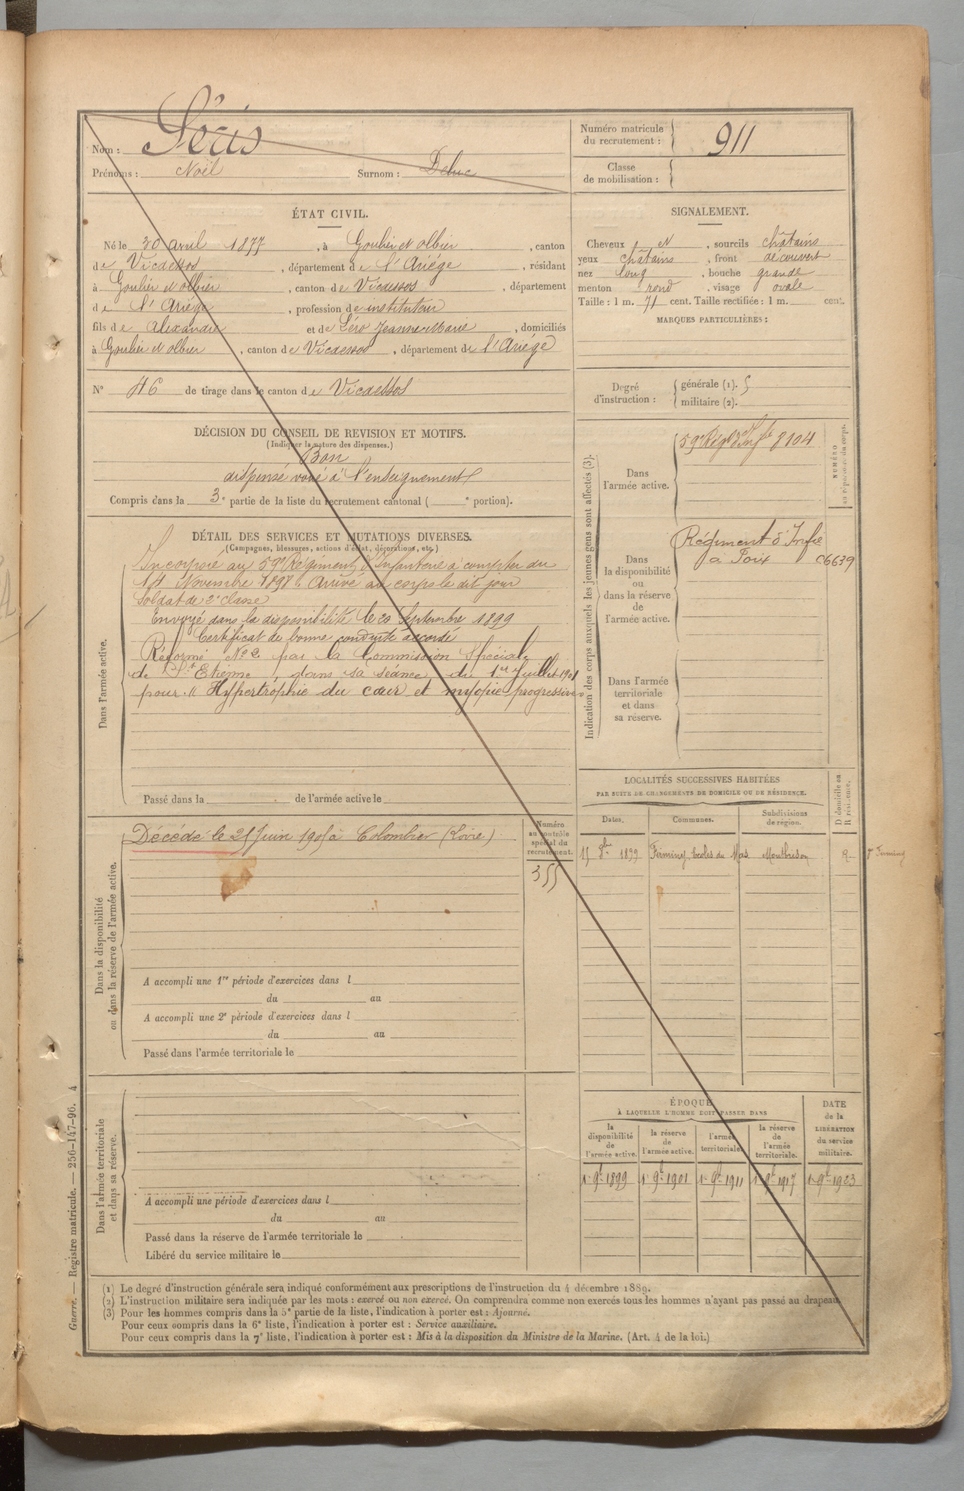 Nom : Séris
Prénoms : Noël Surnom : Deluc
Numéro matricule du recrutement : 911
Classe de mobilisation :
ÉTAT CIVIL.
Né le 30 avril 1877, à Goulier et olbier, canton
de Vicdessos, département de l'Ariége, résidant
à Goulier et olbier, canton de Vicdessos, département
de l'Ariége, profession de instituteur
fils de Alexandre et de Jeanne Marie, domiciliés
à Goulier et olbier, canton de Vicdessos, département de l'Ariége
N° 46 de tirage dans le canton de Vicdessos
SIGNALEMENT.
Cheveux et, sourcils châtains
yeux châtains, front découvert
nez long, bouche grande
menton rond, visage ovale
Taille : 1 m. 71 cent. Taille rectifiée : 1 m. cent.
MARQUES PARTICULIÈRES :
Degré d'instruction : générale (1).
militaire (2).
DÉCISION DU CONSEIL DE REVISION ET MOTIFS.
(Indiquer la nature des dispenses.)
Bon
dispensé voué à l'enseignement
Compris dans la 3e partie de la liste du recrutement cantonal ( e portion).
DÉTAIL DES SERVICES ET MUTATIONS DIVERSES.
(Campagnes, blessures, actions d'éclat, décorations, etc.)
Dans l'armée active.
Incorporé au 59e Régiment d'Infanterie à compter du
14 Novembre 1898. Arrivé au corps le dit jour
Soldat de 2e classe
Envoyé dans la disponibilité le 20 Septembre 1899
Certificat de bonne conduite accordé
Réformé N° 2 par la Commission Spéciale
de St Etienne, dans sa séance du 1er Juillet 1901
pour "Hypertrophie du cœur et myopie progressive"
Passé dans la de l'armée active le
Indication des corps auxquels les jeunes gens sont affectés (3).
NUMÉRO au répertoire du corps.
Dans l'armée active.
59e Régt d'Infie 8104
Dans la disponibilité ou dans la réserve de l'armée active.
Régiment d'Infie
à Foix 06679
Dans l'armée territoriale et dans sa réserve.
LOCALITÉS SUCCESSIVES HABITÉES
PAR SUITE DE CHANGEMENTS DE DOMICILE OU DE RÉSIDENCE.
Dates. Communes. Subdivisions de région. D domicile ou R résidence.
15 8bre 1899 Firminy, écoles du Mas Montbrison R
Dans la disponibilité ou dans la réserve de l'armée active.
Décédé le 25 Juin 1905 à Colombier (Loire)
Numéro au contrôle spécial du recrutement.
355
A accompli une 1re période d'exercices dans l
du au
A accompli une 2e période d'exercices dans l
du au
Passé dans l'armée territoriale le
Dans l'armée territoriale et dans sa réserve.
A accompli une période d'exercices dans l
du au
Passé dans la réserve de l'armée territoriale le
Libéré du service militaire le
ÉPOQUE
À LAQUELLE L'HOMME DOIT PASSER DANS
la disponibilité de l'armée active. la réserve de l'armée active. l'armée territoriale. la réserve de l'armée territoriale.
DATE de la LIBÉRATION du service militaire.
1r 9bre 1899 1r 9bre 1901 1r 9bre 1911 1r 9bre 1917 1r 9bre 1923
(1) Le degré d'instruction générale sera indiqué conformément aux prescriptions de l'instruction du 4 décembre 1889.
(2) L'instruction militaire sera indiquée par les mots : exercé ou non exercé. On comprendra comme non exercés tous les hommes n'ayant pas passé au drapeau.
(3) Pour les hommes compris dans la 5e partie de la liste, l'indication à porter est : Ajourné.
Pour ceux compris dans la 6e liste, l'indication à porter est : Service auxiliaire.
Pour ceux compris dans la 7e liste, l'indication à porter est : Mis à la disposition du Ministre de la Marine. (Art. 4 de la loi.)
Guerre. — Registre matricule. — 256-147-96. 4